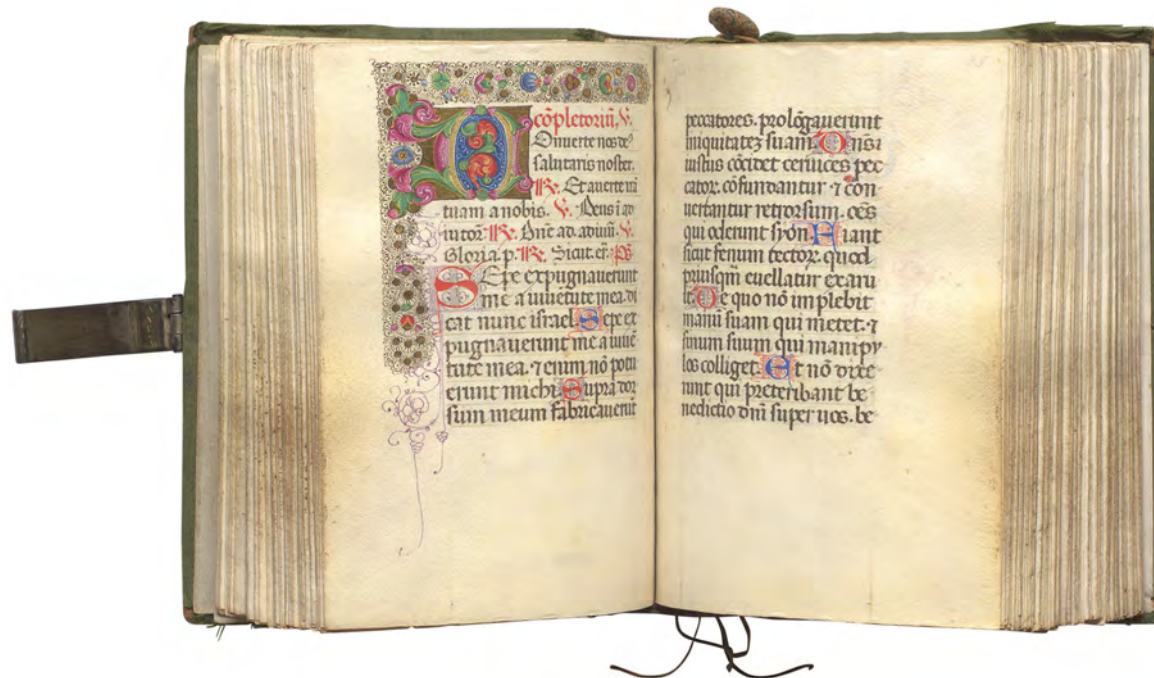 cõpletoriũ. V.
Onuerte nos de
salutaris noster.
R. Et auerte irã
tuam a nobis. V. Deus ĩ ad
iutor R. Dñe ad adiuũ. V.
Gloria p. R. Sicut er. ps
Sepe expugnauerunt
me a iuuẽtute mea. di
cat nunc israel. Sepe ex
pugnauerunt me a iuuẽ
tute mea. ⁊ enim nõ potu
erunt michi. Supra dor
sum meum fabricauerũt
peccatores. prolõgauerunt
iniquitatez suam. Dñs
iustus cõcidet ceruices pec
catoꝝ. cõfundantur ⁊ con
uertantur retrorsum. oẽs
qui oderunt syon. Fiant
sicut fenum tectoꝝ. quod
priusqm̃ euellatur exaru
it. De quo nõ implebit
manũ suam qui metet. ⁊
sinum suum qui manipy
los colliget. Et nõ dixe
runt qui preteribant be
nedictio dñi super uos. be